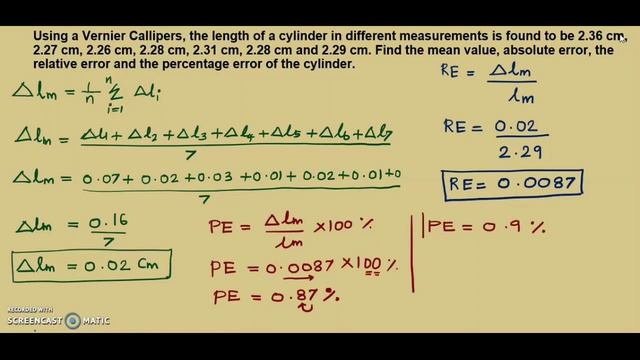 Using a Vernier Callipers, the length of a cylinder in different measurements is found to be 2.36 cm,
2.27 cm, 2.26 cm, 2.28 cm, 2.31 cm, 2.28 cm and 2.29 cm. Find the mean value, absolute error, the
relative error and the percentage error of the cylinder.
Δlm = 1/n n Σ i=1 Δli
Δlm = Δl1 + Δl2 + Δl3 + Δl4 + Δl5 + Δl6 + Δl7 / 7
Δlm = 0.07 + 0.02 + 0.03 + 0.01 + 0.02 + 0.01 + 0 / 7
Δlm = 0.16 / 7
Δlm = 0.02 Cm
RE = Δlm / lm
RE = 0.02 / 2.29
RE = 0.0087
PE = Δlm / lm × 100 %
PE = 0.0087 × 100 %
PE = 0.87 %
PE = 0.9 %
RECORDED WITH
SCREENCAST MATIC